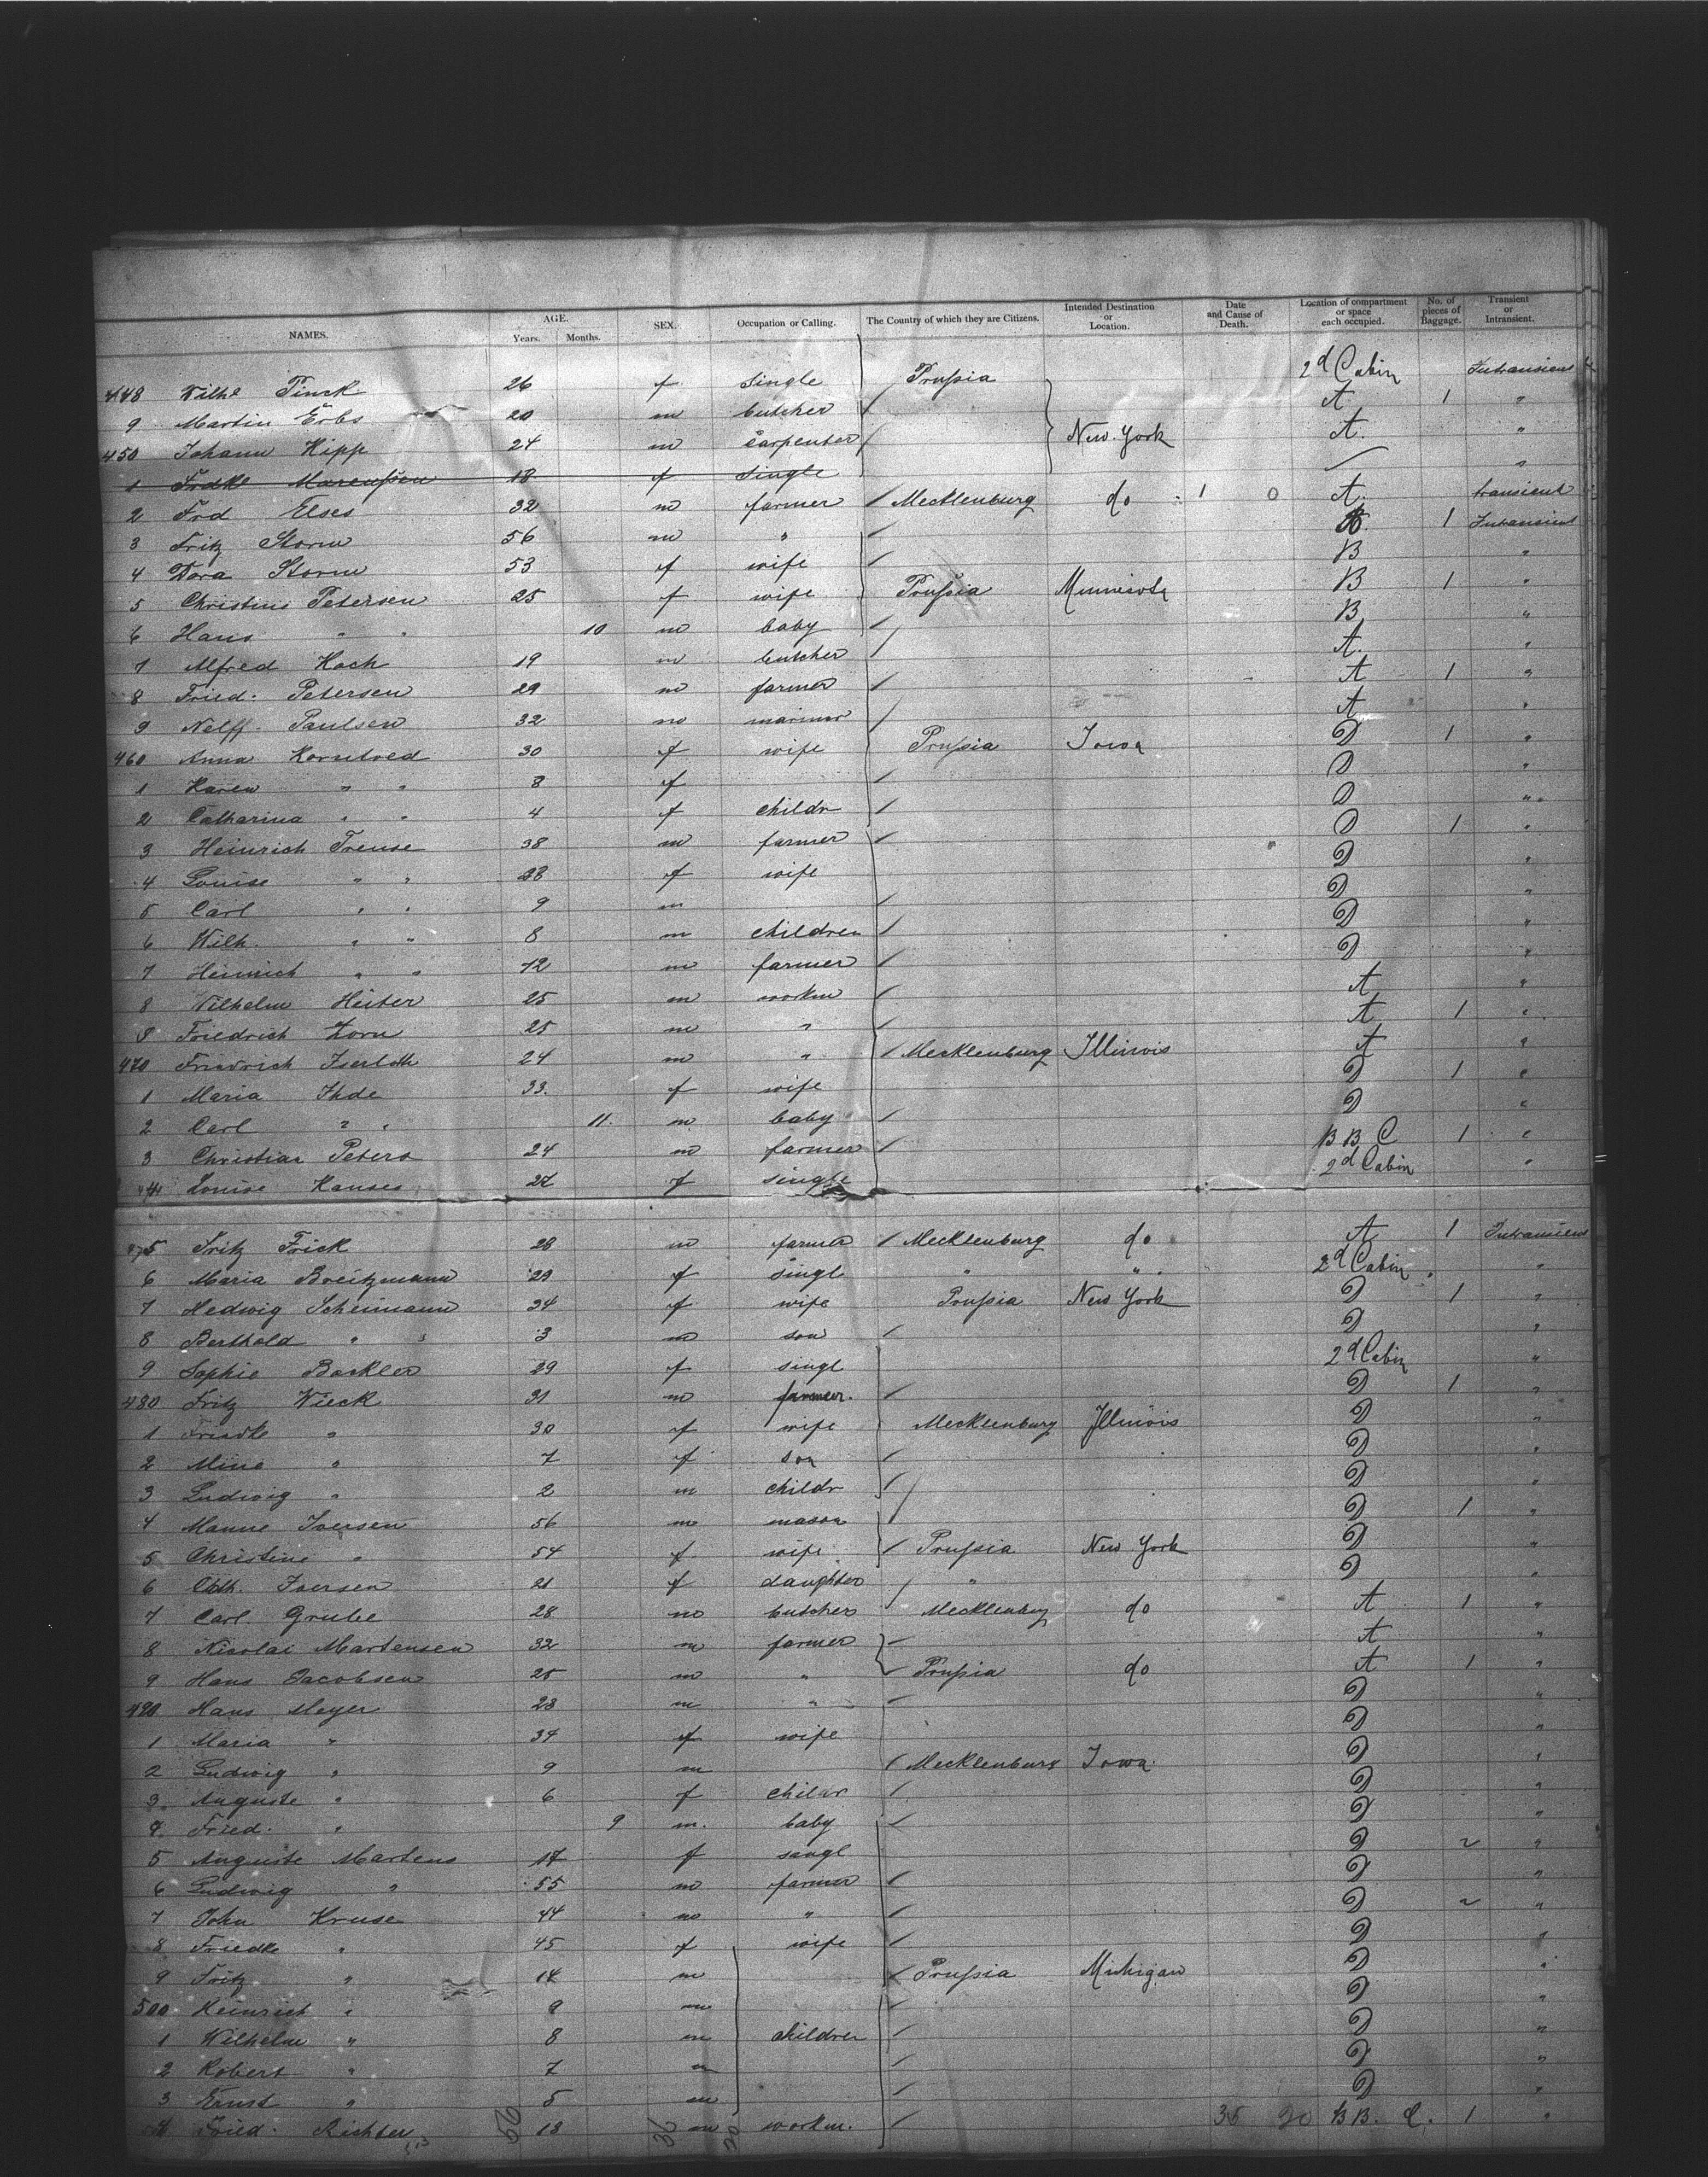 NAMES. AGE. Years. Months. SEX. Occupation or Calling. The Country of which they are Citizens. Intended Destination or Location. Date and Cause of Death. Location of compartment or space each occupied. No. of pieces of Baggage. Transient or Intransient.
448 Wilhe Pinck 26 f single Prussia 2d Cabin Intransient
9 Martin Erbs 20 m butcher A 1 "
450 Johann Hipp 24 m carpenter New York A. "
1 Frdke Marcussen 18 f single "
2 Frd Elses 32 m farmer Mecklenburg do 1 0 A. transient
3 Fritz Storm 56 m " B. 1 Intransient
4 Dora Storm 53 f wife B "
5 Christine Petersen 25 f wife Prussia Minnesota B 1 "
6 Hans " " 10 m baby B "
7 Alfred Koch 19 m butcher A. "
8 Fried. Petersen 29 m farmer A 1 "
9 Nelff. Paulsen 32 m mariner A "
460 Anna Korntved 30 f wife Prussia Iowa D 1 "
1 Karen " " 8 f D "
2 Catharina " " 4 f childr D "
3 Heinrich Trense 38 m farmer D 1 "
4 Louise " " 28 f wife D "
5 Carl " " 9 m D "
6 Wilh. " " 8 m children D "
7 Heinrich " " 72 m farmer D "
8 Wilhelm Hüter 25 m workm A "
9 Friedrich Zorn 25 m " A 1 "
470 Friedrich Iserloth 24 m " Mecklenburg Illinois A "
1 Maria Ihde 33. f wife D 1 "
2 Carl " " 11. m baby D "
3 Christian Peters 24 m farmer B B C 1 "
4 Louise Hanses 27 f single 2d Cabin "
475 Fritz Frick 28 m farmer Mecklenburg do A 1 Intransient
6 Maria Breitzmann 29 f singl " " 2d Cabin "
7 Hedwig Scheimann 34 f wife Prussia New York D 1 "
8 Berthold " " 3 m son D "
9 Sophie Bockler 29 f singl 2d Cabin "
480 Fritz Wieck 31 m farmer. D 1 "
1 Friedke " 30 f wife Mecklenburg Illinois D "
2 Mine " 7 f son D "
3 Ludwig " 2 m childr D "
4 Manne Iversen 56 m mason D 1 "
5 Christine " 54 f. wife Prussia New York D "
6 Cath. Iversen 21 f daughter " D "
7 Carl Grube 28 m butcher Mecklenburg do A 1 "
8 Nicolai Martensen 32 m farmer A "
9 Hans Jacobsen 25 m " Prussia do A 1 "
490 Hans Meyer 23 m " D "
1 Maria " 34 f wife D "
2 Ludwig " 9 m Mecklenburg Iowa. D "
3 Auguste " 6 f childr D "
4. Fried. " 9 m. baby D "
5 Auguste Martens 17 f singl D ~ "
6 Ludwig " 55 m farmer D "
7 John Kruse 44 m " D ~ "
8 Friedke " 45 f wife D "
9 Fritz " 14 m Prussia Michigan D "
500 Heinrich " 9 m D "
1 Wilhelm " 8 m children D "
2 Robert " 7 m D "
3 Ernst " 5 m D "
4 Fried. Richter 18 m workm. 36 20 B B. C. 1 "
56 36 20